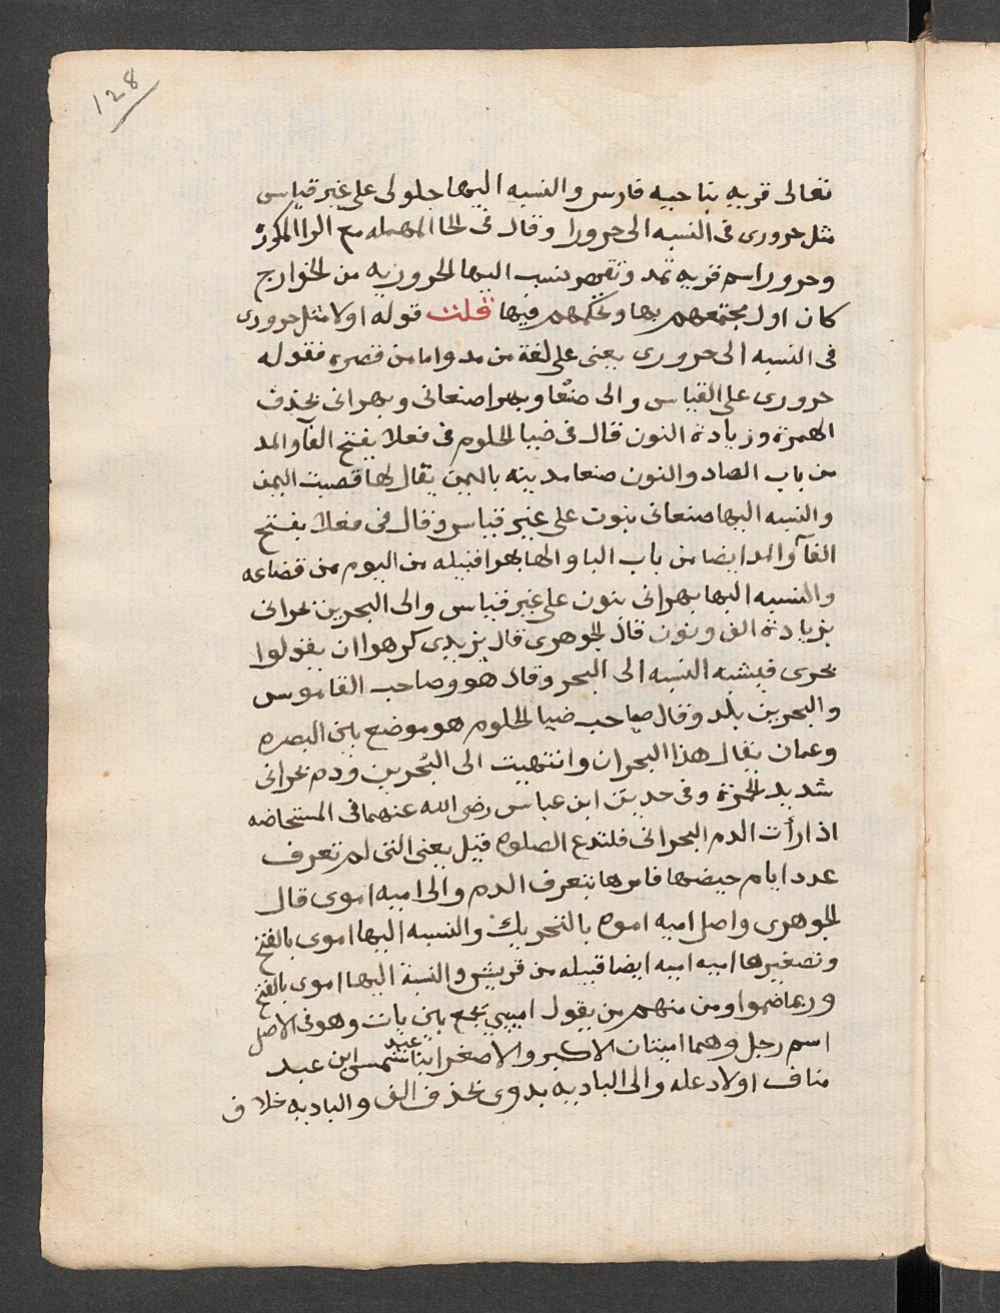 128
تعالى قريه بناحيه فارس والنسبه اليها جلولى على غير قياس
مثل حرورى فى النسبه الى حرورا وقال فى الحا المهمله مع الرا المكررة
وحرورا اسم قريه تمد وتقصر ينسب اليها الحروريه من الخوارج
كان اول مجتمعهم بها وتحكمهم فيها قلت قوله اولا مثل حرورى
فى النسبه الى حرورى يعنى على لغة من مد واما من قصره فقوله
حرورى على القياس والى صنعا وبهرا صنعانى وبهرانى بحذف
الهمزة وزيادة النون قال فى ضيا الحلوم فى فعلا بفتح الفآ والمد
من باب الصاد والنون صنعا مدينه باليمن يقال لها قصبت اليمن
والنسبه اليها صنعانى بنون على غير قياس وقال فى فعلا بفتح
الفآ والمد ايضا من باب البا والها بهرا قبيله من اليوم من قضاعه
والنسبه اليها بهرانى بنون على غير قياس والى البحرين بحرانى
بزيادة الف ونون قال الجوهرى قال يزيدى كرهوا ان يقولوا
بحرى فيشبه النسبه الى البحر وقال هو وصاحب القاموس
والبحرين بلد وقال صاحب ضيا الحلوم هو موضع بين البصره
وعمان يقال هذا البحران وانتهيت الى البحرين ودم بحرانى
شديد الحمرة وفى حديث ابن عباس رضى الله عنهما فى المستحاضه
اذا رأت الدم البحرانى فلتدع الصلوه قيل يعنى التى لم تعرف
عدد ايام حيضها فامرها بتعرف الدم والى اميه اموى قال
الجوهرى واصل اميه اموه بالتحريك والنسبه اليها اموى بالفتح
وتصغيرها اميه اميه ايضا قبيله من قريش والنسبة اليها اموى بالفتح
وربما ضموا ومن منهم من يقول اميى يجمع بين يات وهو فى الاصل
اسم رجل وهما اميتان الاكبر والاصغر ابنا عبد شمس ابن عبد
مناف اولاد عله والى الباديه بدوى بحذف الف والباديه خلاف